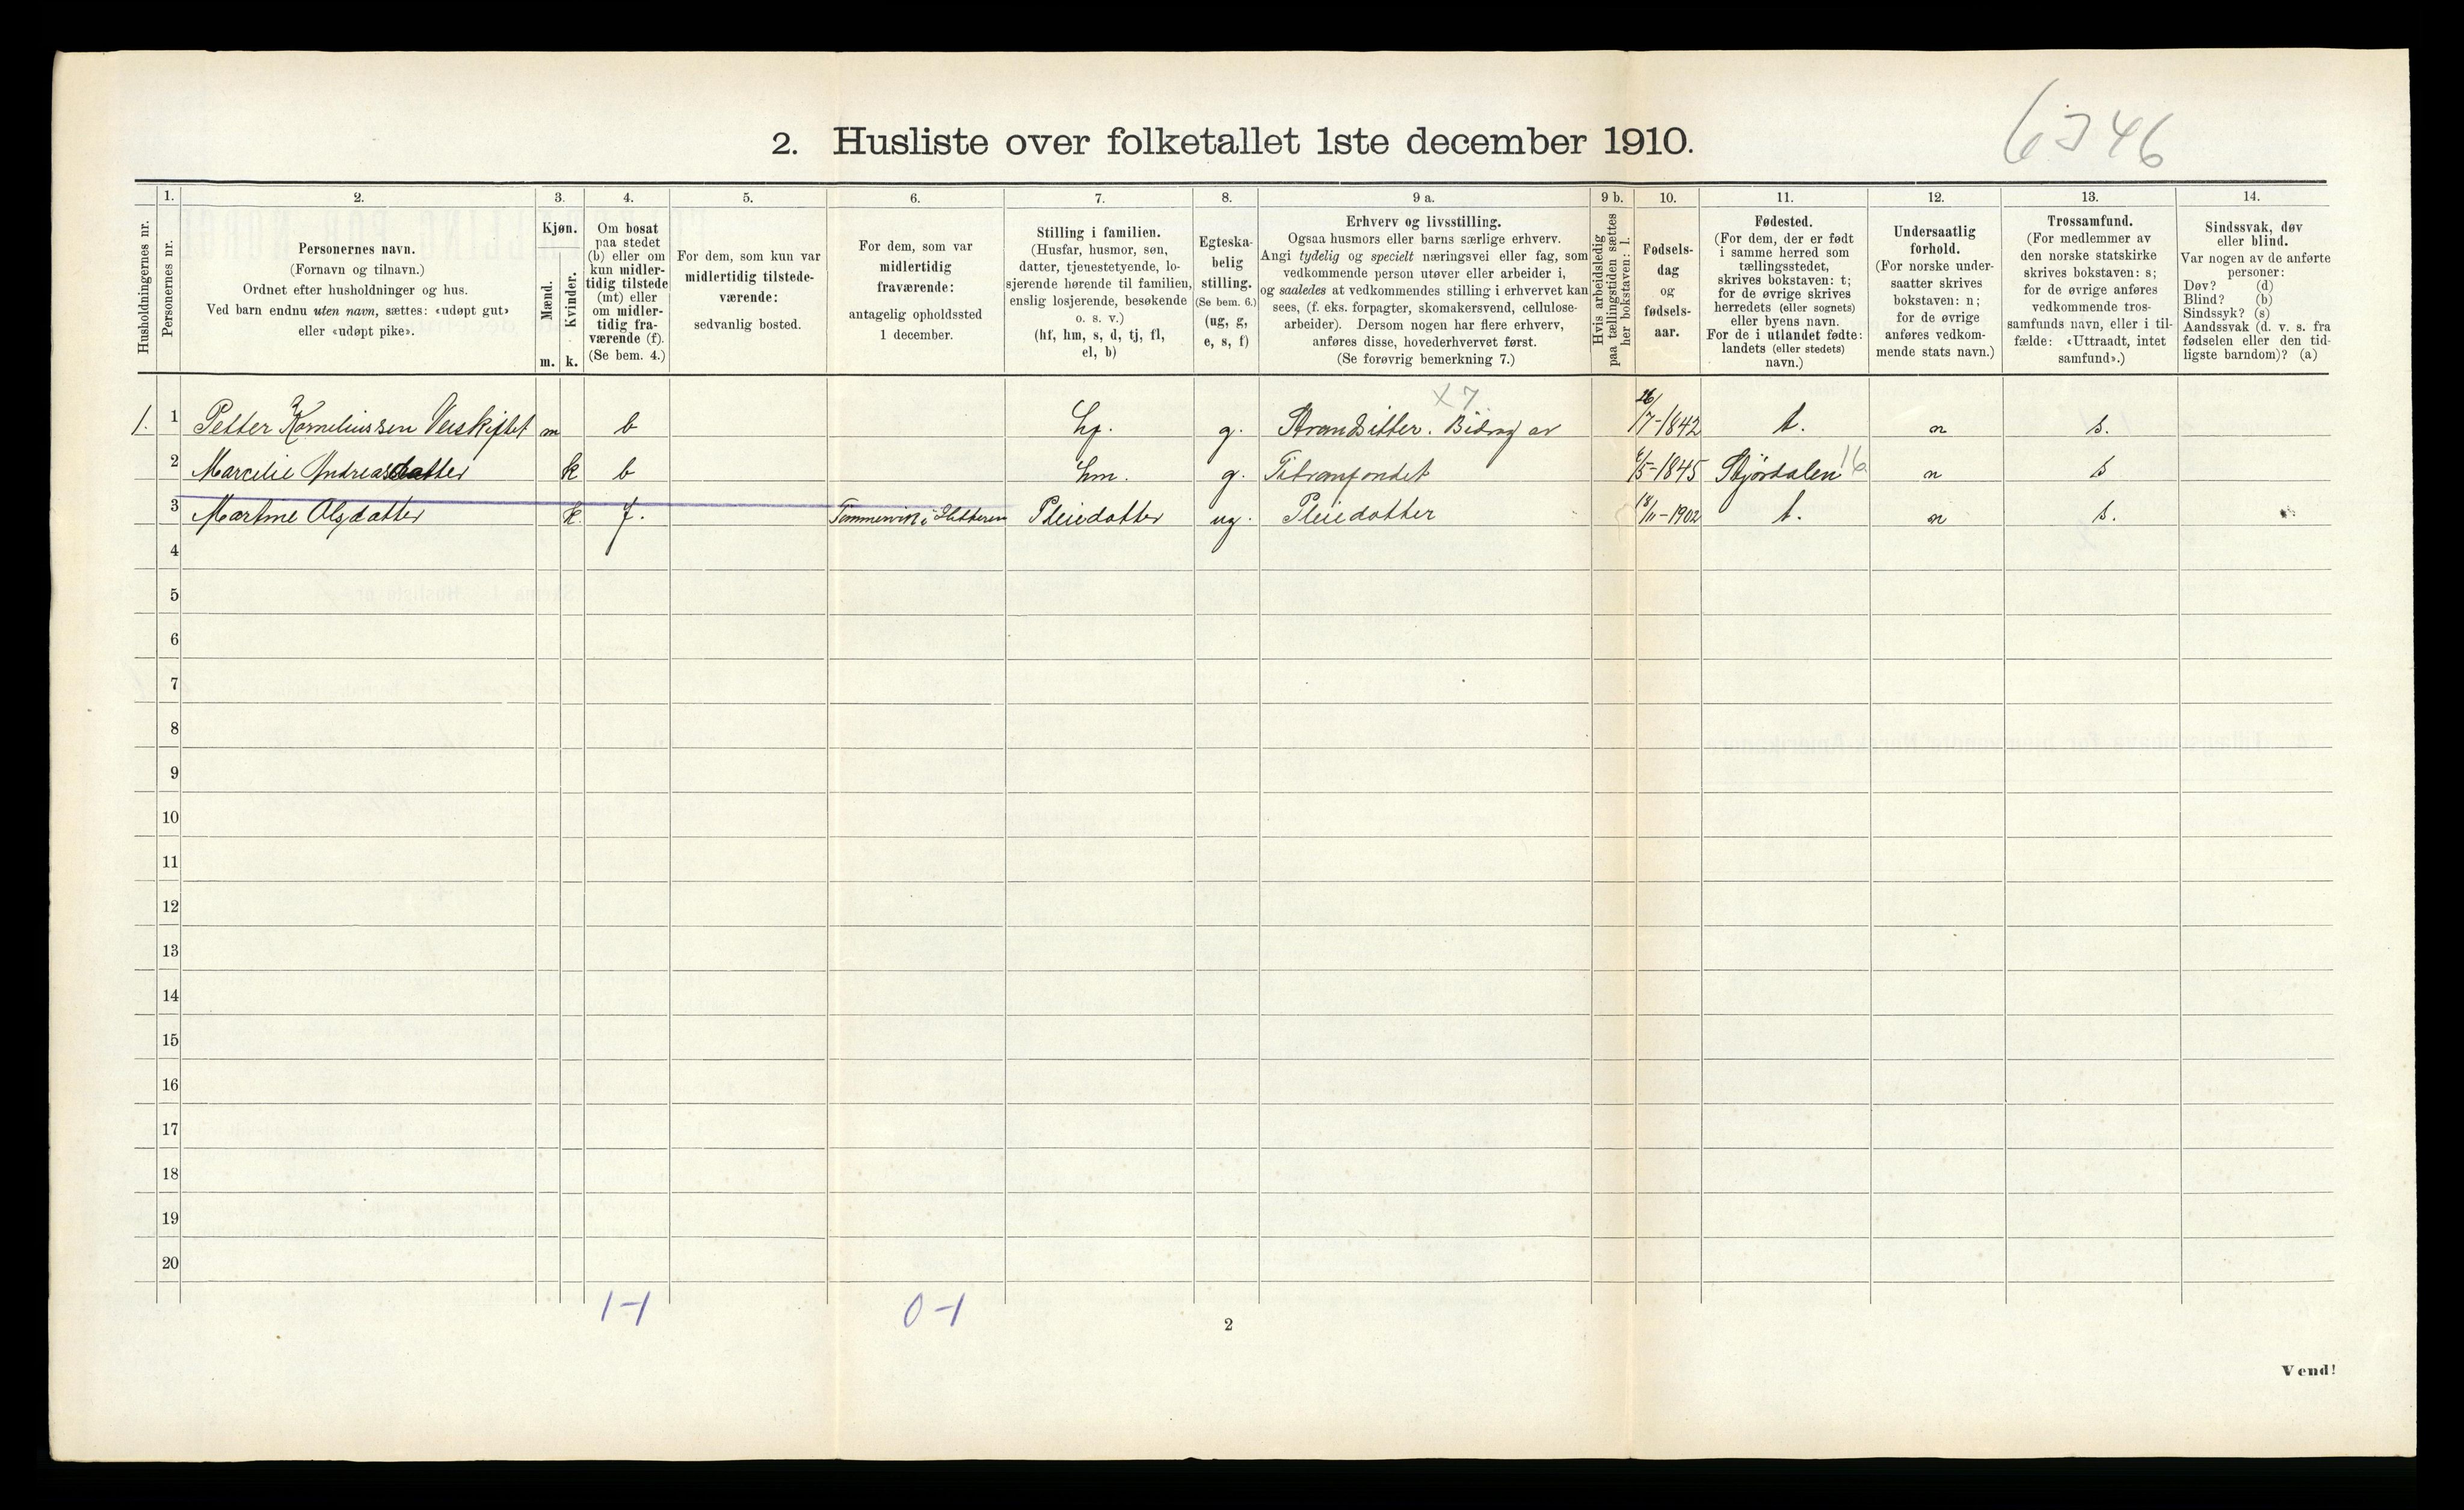 6346
2. Husliste over folketallet 1ste december 1910.
Husholdningernes nr.
1.
Personernes nr.
2.
Personernes navn.
(Fornavn og tilnavn.)
Ordnet efter husholdninger og hus.
Ved barn endnu uten navn, sættes: «udøpt gut»
eller «udøpt pike».
3.
Kjøn.
Mænd.
m.
Kvinder.
k.
4.
Om bosat
paa stedet
(b) eller om
kun midler-
tidig tilstede
(mt) eller
om midler-
tidig fra-
værende (f).
(Se bem. 4.)
5.
For dem, som kun var
midlertidig tilstede-
værende:
sedvanlig bosted.
6.
For dem, som var
midlertidig
fraværende:
antagelig opholdssted
1 december.
7.
Stilling i familien.
(Husfar, husmor, søn,
datter, tjenestetyende, lo-
sjerende hørende til familien,
enslig losjerende, besøkende
o. s. v.)
(hf, hm, s, d, tj, fl,
el, b)
8.
Egteska-
belig
stilling.
(Se bem. 6.)
(ug, g,
e, s, f)
9 a.
Erhverv og livsstilling.
Ogsaa husmors eller barns særlige erhverv.
Angi tydelig og specielt næringsvei eller fag, som
vedkommende person utøver eller arbeider i,
og saaledes at vedkommendes stilling i erhvervet kan
sees, (f. eks. forpagter, skomakersvend, cellulose-
arbeider). Dersom nogen har flere erhverv,
anføres disse, hovederhvervet først.
(Se forøvrig bemerkning 7.)
9 b.
Hvis arbeidsledig
paa tællingstiden sættes
her bokstaven: l.
10.
Fødsels-
dag
og
fødsels-
aar.
11.
Fødested.
(For dem, der er født
i samme herred som
tællingsstedet,
skrives bokstaven: t;
for de øvrige skrives
herredets (eller sognets)
eller byens navn.
For de i utlandet fødte:
landets (eller stedets)
navn.)
12.
Undersaatlig
forhold.
(For norske under-
saatter skrives
bokstaven: n;
for de øvrige
anføres vedkom-
mende stats navn.)
13.
Trossamfund.
(For medlemmer av
den norske statskirke
skrives bokstaven: s;
for de øvrige anføres
vedkommende tros-
samfunds navn, eller i til-
fælde: «Uttraadt, intet
samfund».)
14.
Sindssvak, døv
eller blind.
Var nogen av de anførte
personer:
Døv? (d)
Blind? (b)
Sindssyk? (s)
Aandssvak (d. v. s. fra
fødselen eller den tid-
ligste barndom)? (a)
X 7
1. 1 Petter Korneliussen m b hf. g. Strandsitter. Bidrag av 26/7-1842 t. n s.
2 Marcelie Andreasdatter k b hm. g. Titranfondet 6/5-1845 Stjørdalen 16 n s
3 Martine Olsdatter k. f. Pleiedatter ug. Pleiedatter 18/11-1902 t. n s.
4
5
6
7
8
9
10
11
12
13
14
15
16
17
18
19
20
1-1 0-1
2
Vend!